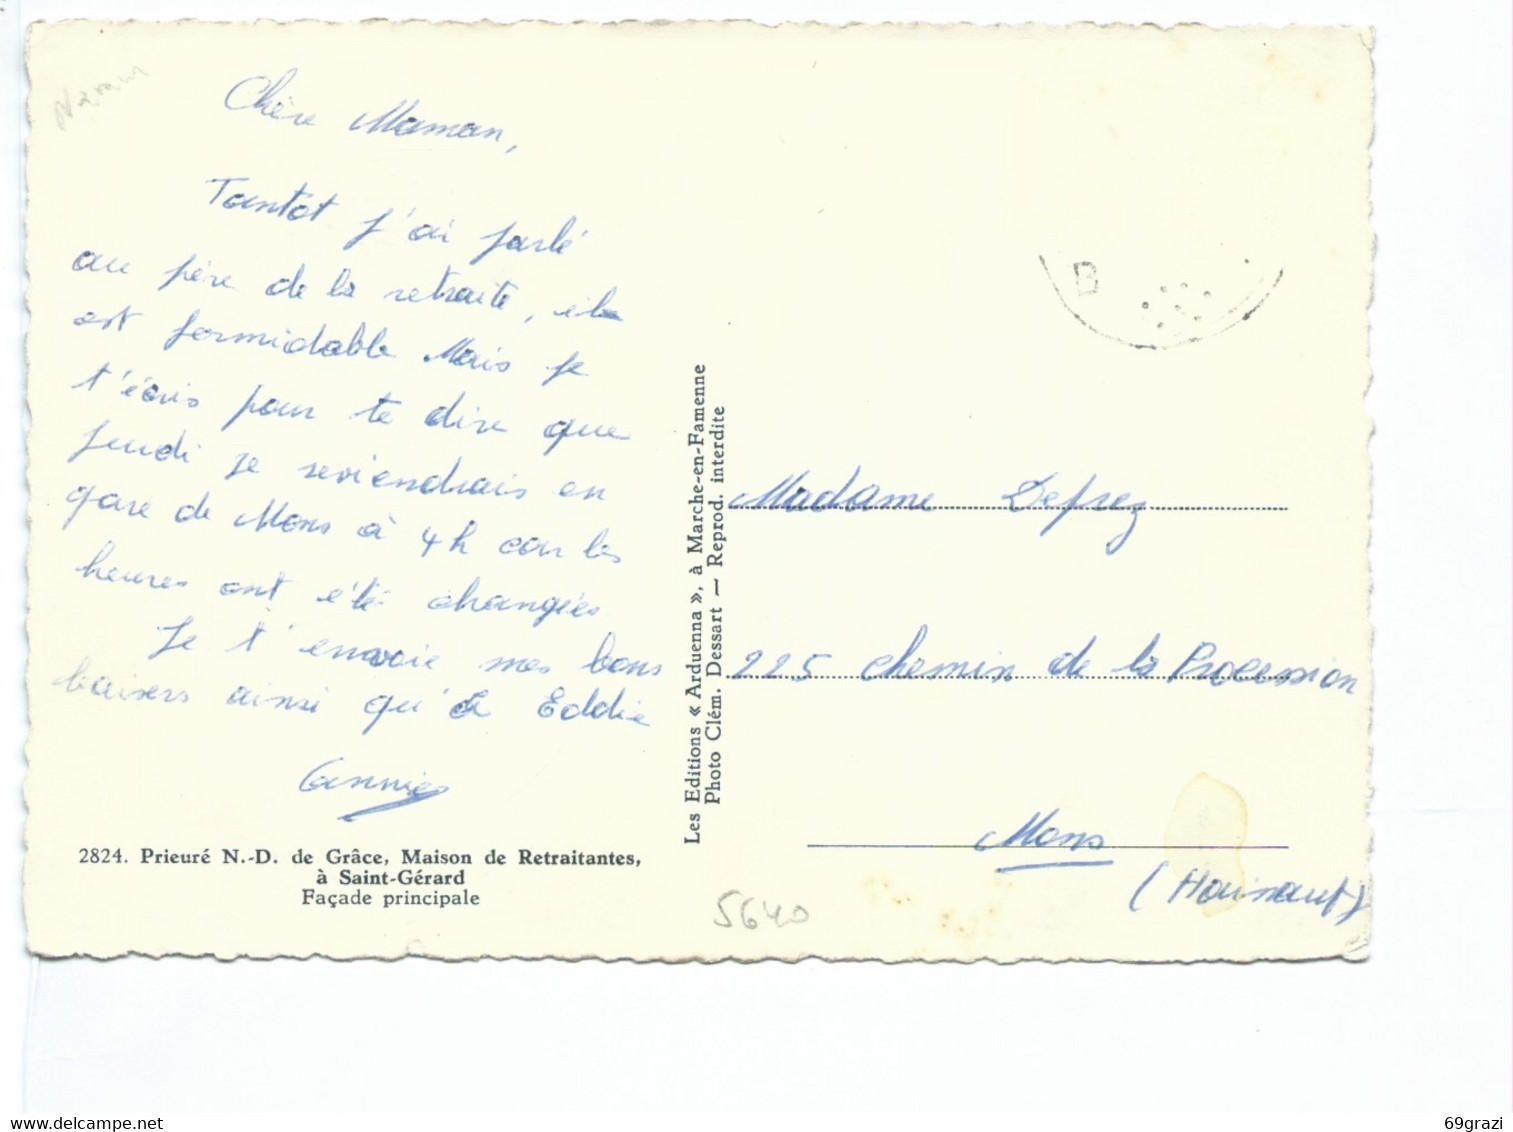 Namur
Chère Maman,
Tantot j'ai parlé
au père de la retraite, il
est formidable Mais je
t'écris pour te dire que
jeudi je reviendrais en
gare de Mons à 4h car les
heures ont été changées
Je t'envoie mes bons
baisers ainsi qu'à Eddie
Annie
2824. Prieuré N.-D. de Grâce, Maison de Retraitantes,
à Saint-Gérard
Façade principale
Les Editions « Arduenna », à Marche-en-Famenne
Photo Clém. Dessart — Reprod. interdite
B
Madame Defrez
225 chemin de la Procession
Mons
(Hainaut)
5640
69grazi